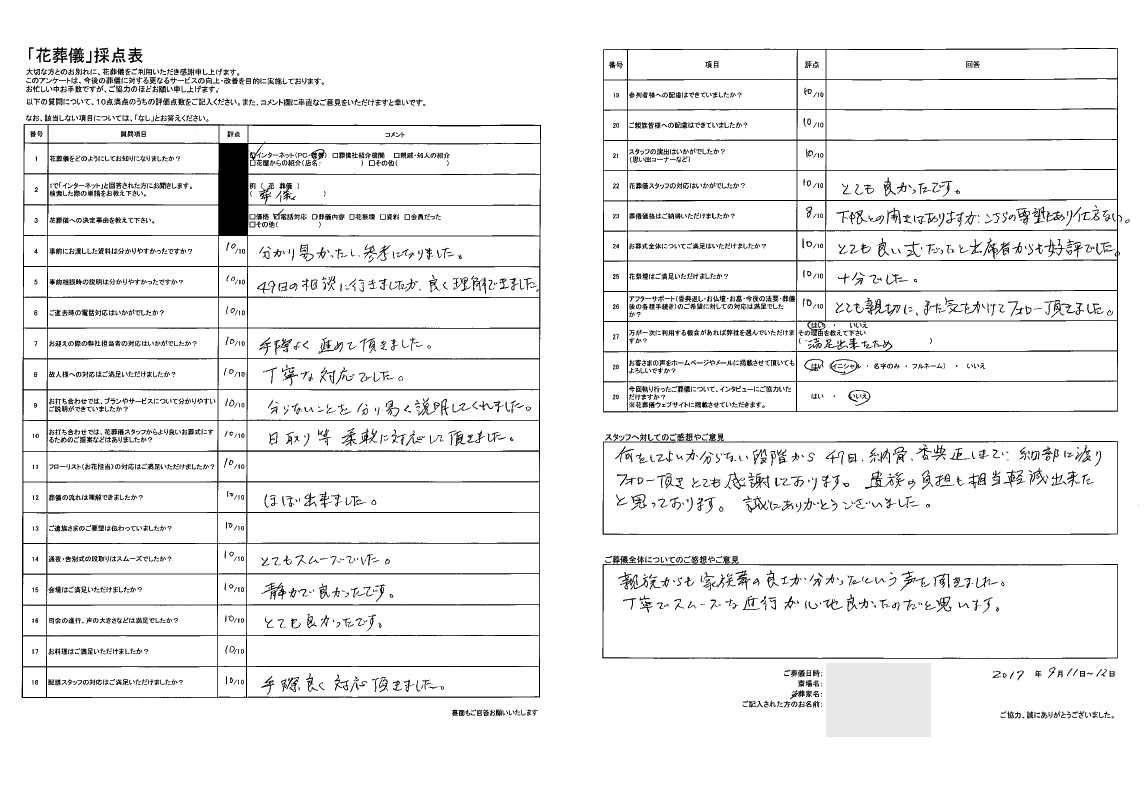 「花葬儀」採点表
大切な方とのお別れに、花葬儀をご利用いただき感謝申し上げます。
このアンケートは、今後の葬儀に対する更なるサービスの向上・改善を目的に実施しております。
お忙しい中お手数ですが、ご協力のほどお願い申し上げます。
以下の質問について、10点満点のうちの評価点数をご記入ください。また、コメント欄に率直なご意見をいただけますと幸いです。
なお、該当しない項目については、「なし」とお答えください。
番号 質問項目 評点 コメント
1 花葬儀をどのようにしてお知りになりましたか? ☑インターネット(PC・携帯) □葬儀社紹介機関 □親戚・知人の紹介
□花屋からの紹介(店名: ) □その他( )
2 1で「インターネット」と回答された方にお聞きします。
検索した際の単語をお教え下さい。
例 ( 花 葬儀 )
( 葬儀 )
3 花葬儀への決定事由を教えて下さい。 □価格 ☑電話対応 □葬儀内容 □花祭壇 □資料 □会員だった
□その他( )
4 事前にお渡しした資料は分かりやすかったですか? 10/10 分かり易かったし、参考になりました。
5 事前相談時の説明は分かりやすかったですか? 10/10 49日の相談に行きましたが、良く理解できました。
6 ご逝去時の電話対応はいかがでしたか? 10/10
7 お迎えの際の弊社担当者の対応はいかがでしたか? 10/10 手際よく進めて頂きました。
8 故人様への対応はご満足いただけましたか? 10/10 丁寧な対応でした。
9 お打ち合わせでは、プランやサービスについて分かりやすい
ご説明ができていましたか? 10/10 分らないことを分り易く説明してくれました。
10 お打ち合わせでは、花葬儀スタッフからより良いお葬式にす
るためのご提案などはありましたか? 10/10 日取り等柔軟に対応して頂きました。
11 フローリスト(お花担当)の対応はご満足いただけましたか? 10/10
12 葬儀の流れは理解できましたか? 10/10 ほぼ出来ました。
13 ご遺族さまのご要望は伝わっていましたか? 10/10
14 通夜・告別式の段取りはスムーズでしたか? 10/10 とてもスムーズでした。
15 会場はご満足いただけましたか? 10/10 静かで良かったです。
16 司会の進行、声の大きさなどは満足でしたか? 10/10 とても良かったです。
17 お料理はご満足いただけましたか? 10/10
18 配膳スタッフの対応はご満足いただけましたか? 10/10 手際良く対応頂きました。
裏面もご回答お願いいたします
番号 項目 評点 回答
19 参列者様への配慮はできていましたか? 10/10
20 ご親族皆様への配慮はできていましたか? 10/10
21 スタッフの演出はいかがでしたか?
(思い出コーナーなど) 10/10
22 花葬儀スタッフの対応はいかがでしたか? 10/10 とても良かったです。
23 葬儀価格はご納得いただけましたか? 8/10 下限との開きはありますが、こちらの要望もあり仕方ない。
24 お葬式全体についてご満足はいただけましたか? 10/10 とても良い式だったと出席者からも好評でした。
25 花祭壇はご満足いただけましたか? 10/10 十分でした。
26 アフターサポート(香典返し・お仏壇・お墓・今後の法要・葬儀
後の各種手続き)のご希望に対しての対応は満足でした
か? 10/10 とても親切に、また気をかけてフォロー頂きました。
27 万が一次に利用する機会があれば弊社を選んでいただけま
すか?
はい ・ いいえ
その理由を教えて下さい
( 満足出来たため )
28 お客さまの声をホームページやメールに掲載させて頂いても
よろしいですか? はい (イニシャル ・ 名字のみ ・ フルネーム) ・ いいえ
29 今回執り行ったご葬儀について、インタビューにご協力いた
だけますか?
※花葬儀ウェブサイトに掲載させていただきます。
はい ・ いいえ
スタッフへ対してのご感想やご意見
何をしてよいか分らない段階から 49日、納骨、香典返しまで、細部に渡り
フォロー頂きとても感謝しております。 遺族の負担も相当軽減出来た
と思っております。 誠にありがとうございました。
ご葬儀全体についてのご感想やご意見
親族からも家族葬の良さが分かったという声を聞きました。
丁寧でスムーズな進行が心地良かったのだと思います。
ご葬儀日時: 2017 年 9月11日~12日
斎場名:
ご葬家名:
ご記入された方のお名前:
ご協力、誠にありがとうございました。